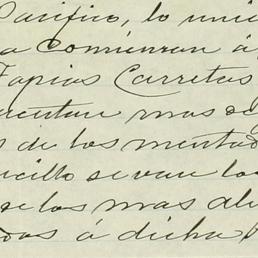 Pacifico, lo uni
a comienzan á
Tapias Carretas
cuentan mas se
de los mentad
cillo se van los
se los mas al
dos á dicha